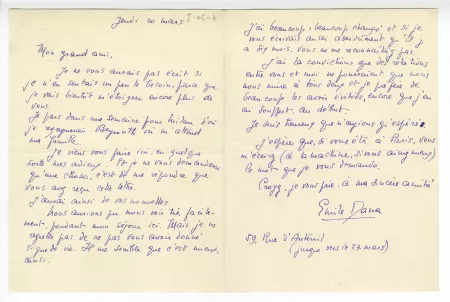 Jeudi 20 mars
I-05-6
Mon grand ami,
Je ne vous aurais pas écrit si
je n'en sentais un peu le besoin, parce que
je vais bientôt m'éloigner encore plus de
vous.
Je pars dans une semaine pour Milan d'où
je regagnerai Beyrouth où m'attend
ma famille.
Je veux vous faire ici, en quelque
sorte mes adieux. Et je ne vous demanderai
qu'une chose, c'est de me répondre que
vous avez reçu cette lettre.
J'aurai ainsi de vos nouvelles.
Nous aurions pu nous voir très facile-
ment, pendant mon séjour ici. Mais je ne
regrette pas de ne pas vous avoir donné
signe de vie. Il me semble que c'est mieux
ainsi.
J'ai beaucoup, beaucoup changé et si je
vous écrivais aussi assidûment qu'il y
a dix mois, vous ne me reconnaîtriez pas.
J'ai la conviction que des relations
entre vous et moi ne pourraient que nous
nuire à tous deux et je préfère de
beaucoup les avoir évitées, encore que j'en
ai souffert au début.
Je suis heureux que n'ayions
J'espère que, si vous êtes à Paris, vous
m'écrirez (à la machine, si vous aimez mieux)
ce mot que je vous demande.
Croyez, je vous prie, à ma sincère amitié
59, Rue d'Auteuil
(jusque vers le 27 mars)